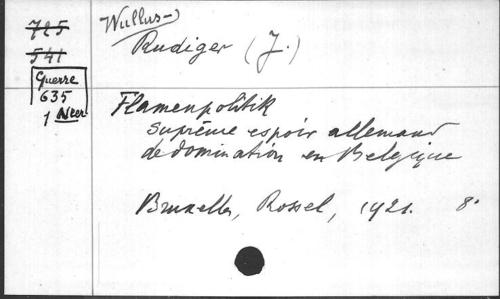 725
541
Guerre
635
1 Neer
Wullus-
Rudiger (J.)
Flamenpolitik
Suprême espoir allemand
de domination en Belgique
Bruxelles, Rossel, 1921. 8°